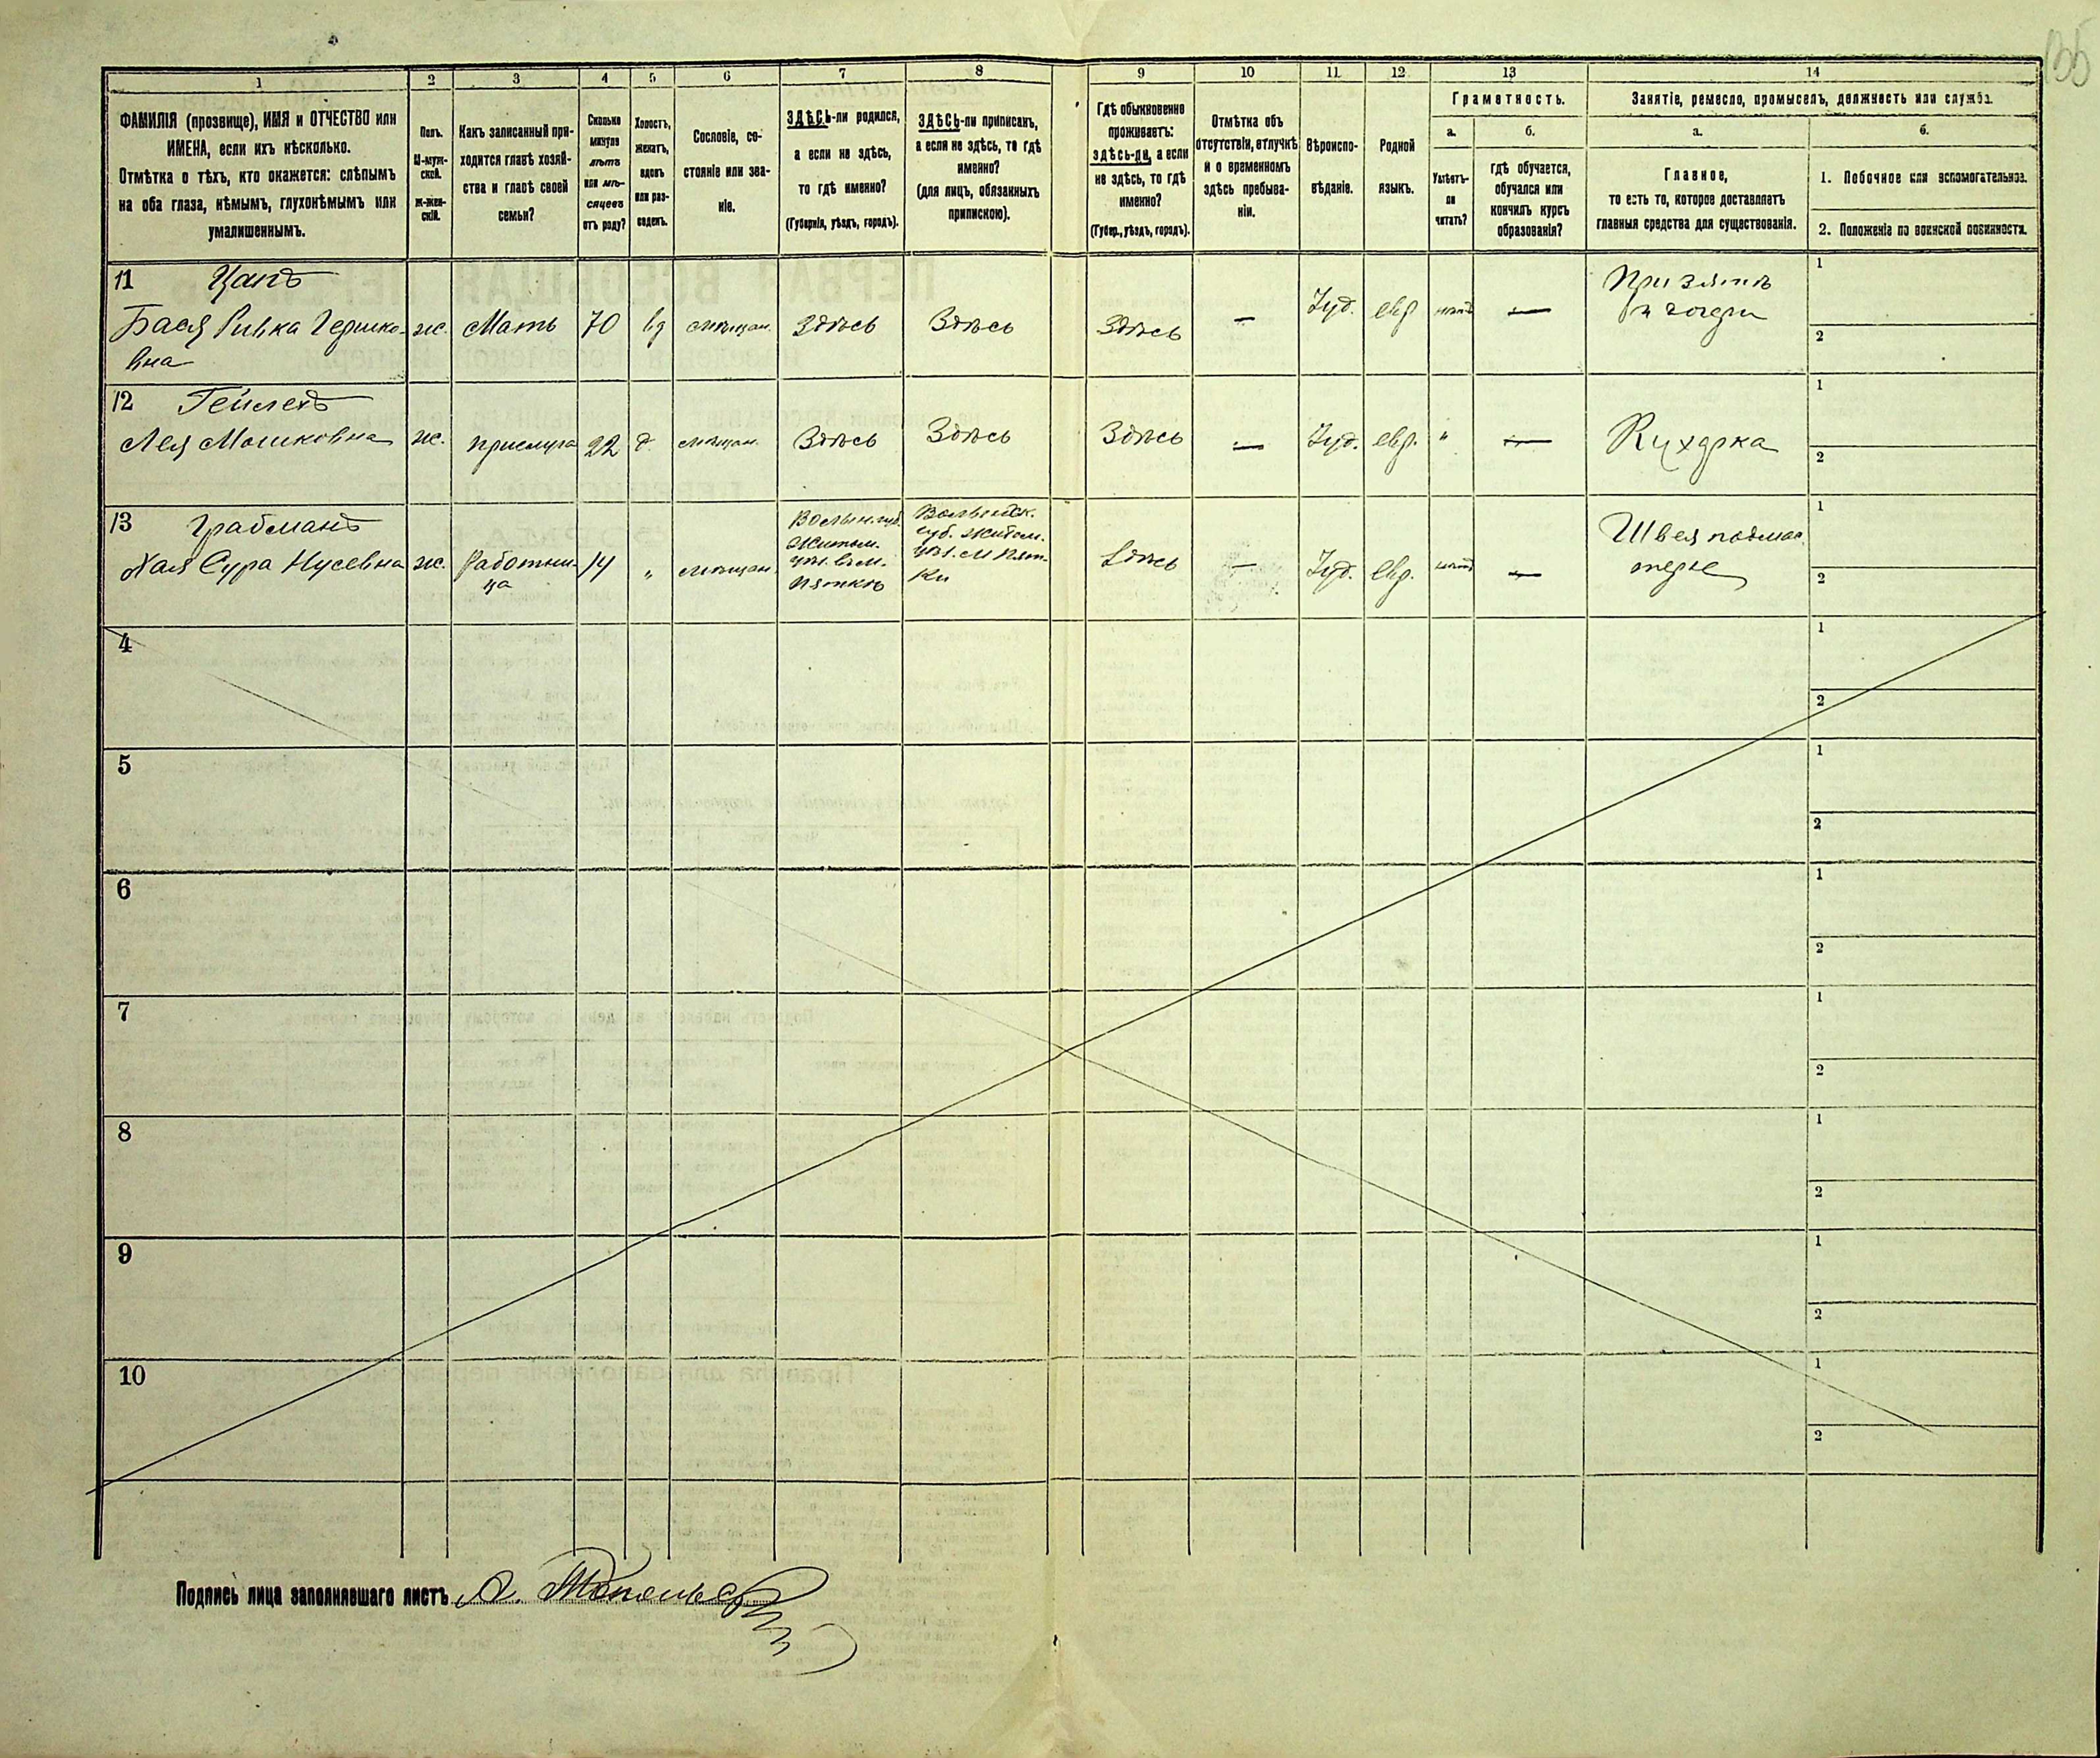 1 2 3 4 5 6 7 8 9 10 11 12 13 14
ФАМИЛІЯ (прозвище), ИМЯ и ОТЧЕСТВО или
ИМЕНА, если ихъ нѣсколько.
Отмѣтка о тѣхъ, кто окажется: слѣпымъ
на оба глаза, нѣмымъ, глухонѣмымъ или
умалишеннымъ.
Полъ.
М-муж-
ской.
Ж-жен-
скій.
Какъ записанный при-
ходится главѣ хозяй-
ства и главѣ своей
семьи?
Сколько
минуло
лѣтъ
или мѣ-
сяцевъ
отъ роду?
Холостъ,
женатъ,
вдовъ
или раз-
веденъ.
Сословіе, со-
стояніе или зва-
ніе.
ЗДѢСЬ-ли родился,
а если не здѣсь,
то гдѣ именно?
(Губернія, уѣздъ, городъ).
ЗДѢСЬ-ли приписанъ,
а если не здѣсь, то гдѣ
именно?
(для лицъ, обязанныхъ
припискою).
Гдѣ обыкновенно
проживаетъ:
здѣсь-ли, а если
не здѣсь, то гдѣ
именно?
(Губер., уѣздъ, городъ).
Отмѣтка объ
отсутствіи, отлучкѣ
и о временномъ
здѣсь пребыва-
ніи.
Вѣроиспо-
вѣданіе.
Родной
языкъ.
Грамотность.
а.
Умѣетъ-
ли
читать?
б.
гдѣ обучается,
обучался или
кончилъ курсъ
образованія?
Занятіе, ремесло, промыселъ, должность или служба.
а.
Главное,
то есть то, которое доставляетъ
главныя средства для существованія.
б.
1. Побочное или вспомогательное.
2. Положеніе по воинской повинности.
11 Цапъ
Бася Ривка Гершко-
вна
ж. Мать 70 вд мѣщан. Здѣсь Здѣсь Здѣсь — Іуд. евр нѣтъ —
При зятѣ
и дочери
1
2
12 Гейлехъ
Лея Мошковна ж. прислуга 22 д. мѣщан. Здѣсь Здѣсь Здѣсь — Іуд. евр. " — Кухарка
1
2
13 Грабманъ
Хая Сура Нусевна ж. Работни-
ца
14 " мѣщан.
Волын. губ.
Житом.
уѣз. въ м.
Пяткѣ
Волынск.
губ. Житом.
уѣз. м Пят-
ки
Здѣсь — Іуд. евр. нѣтъ —
Швея подмас
терье
1
2
4
1
2
5
1
2
6
1
2
7
1
2
8
1
2
9
1
2
10
1
2
Подпись лица заполнявшаго листъ